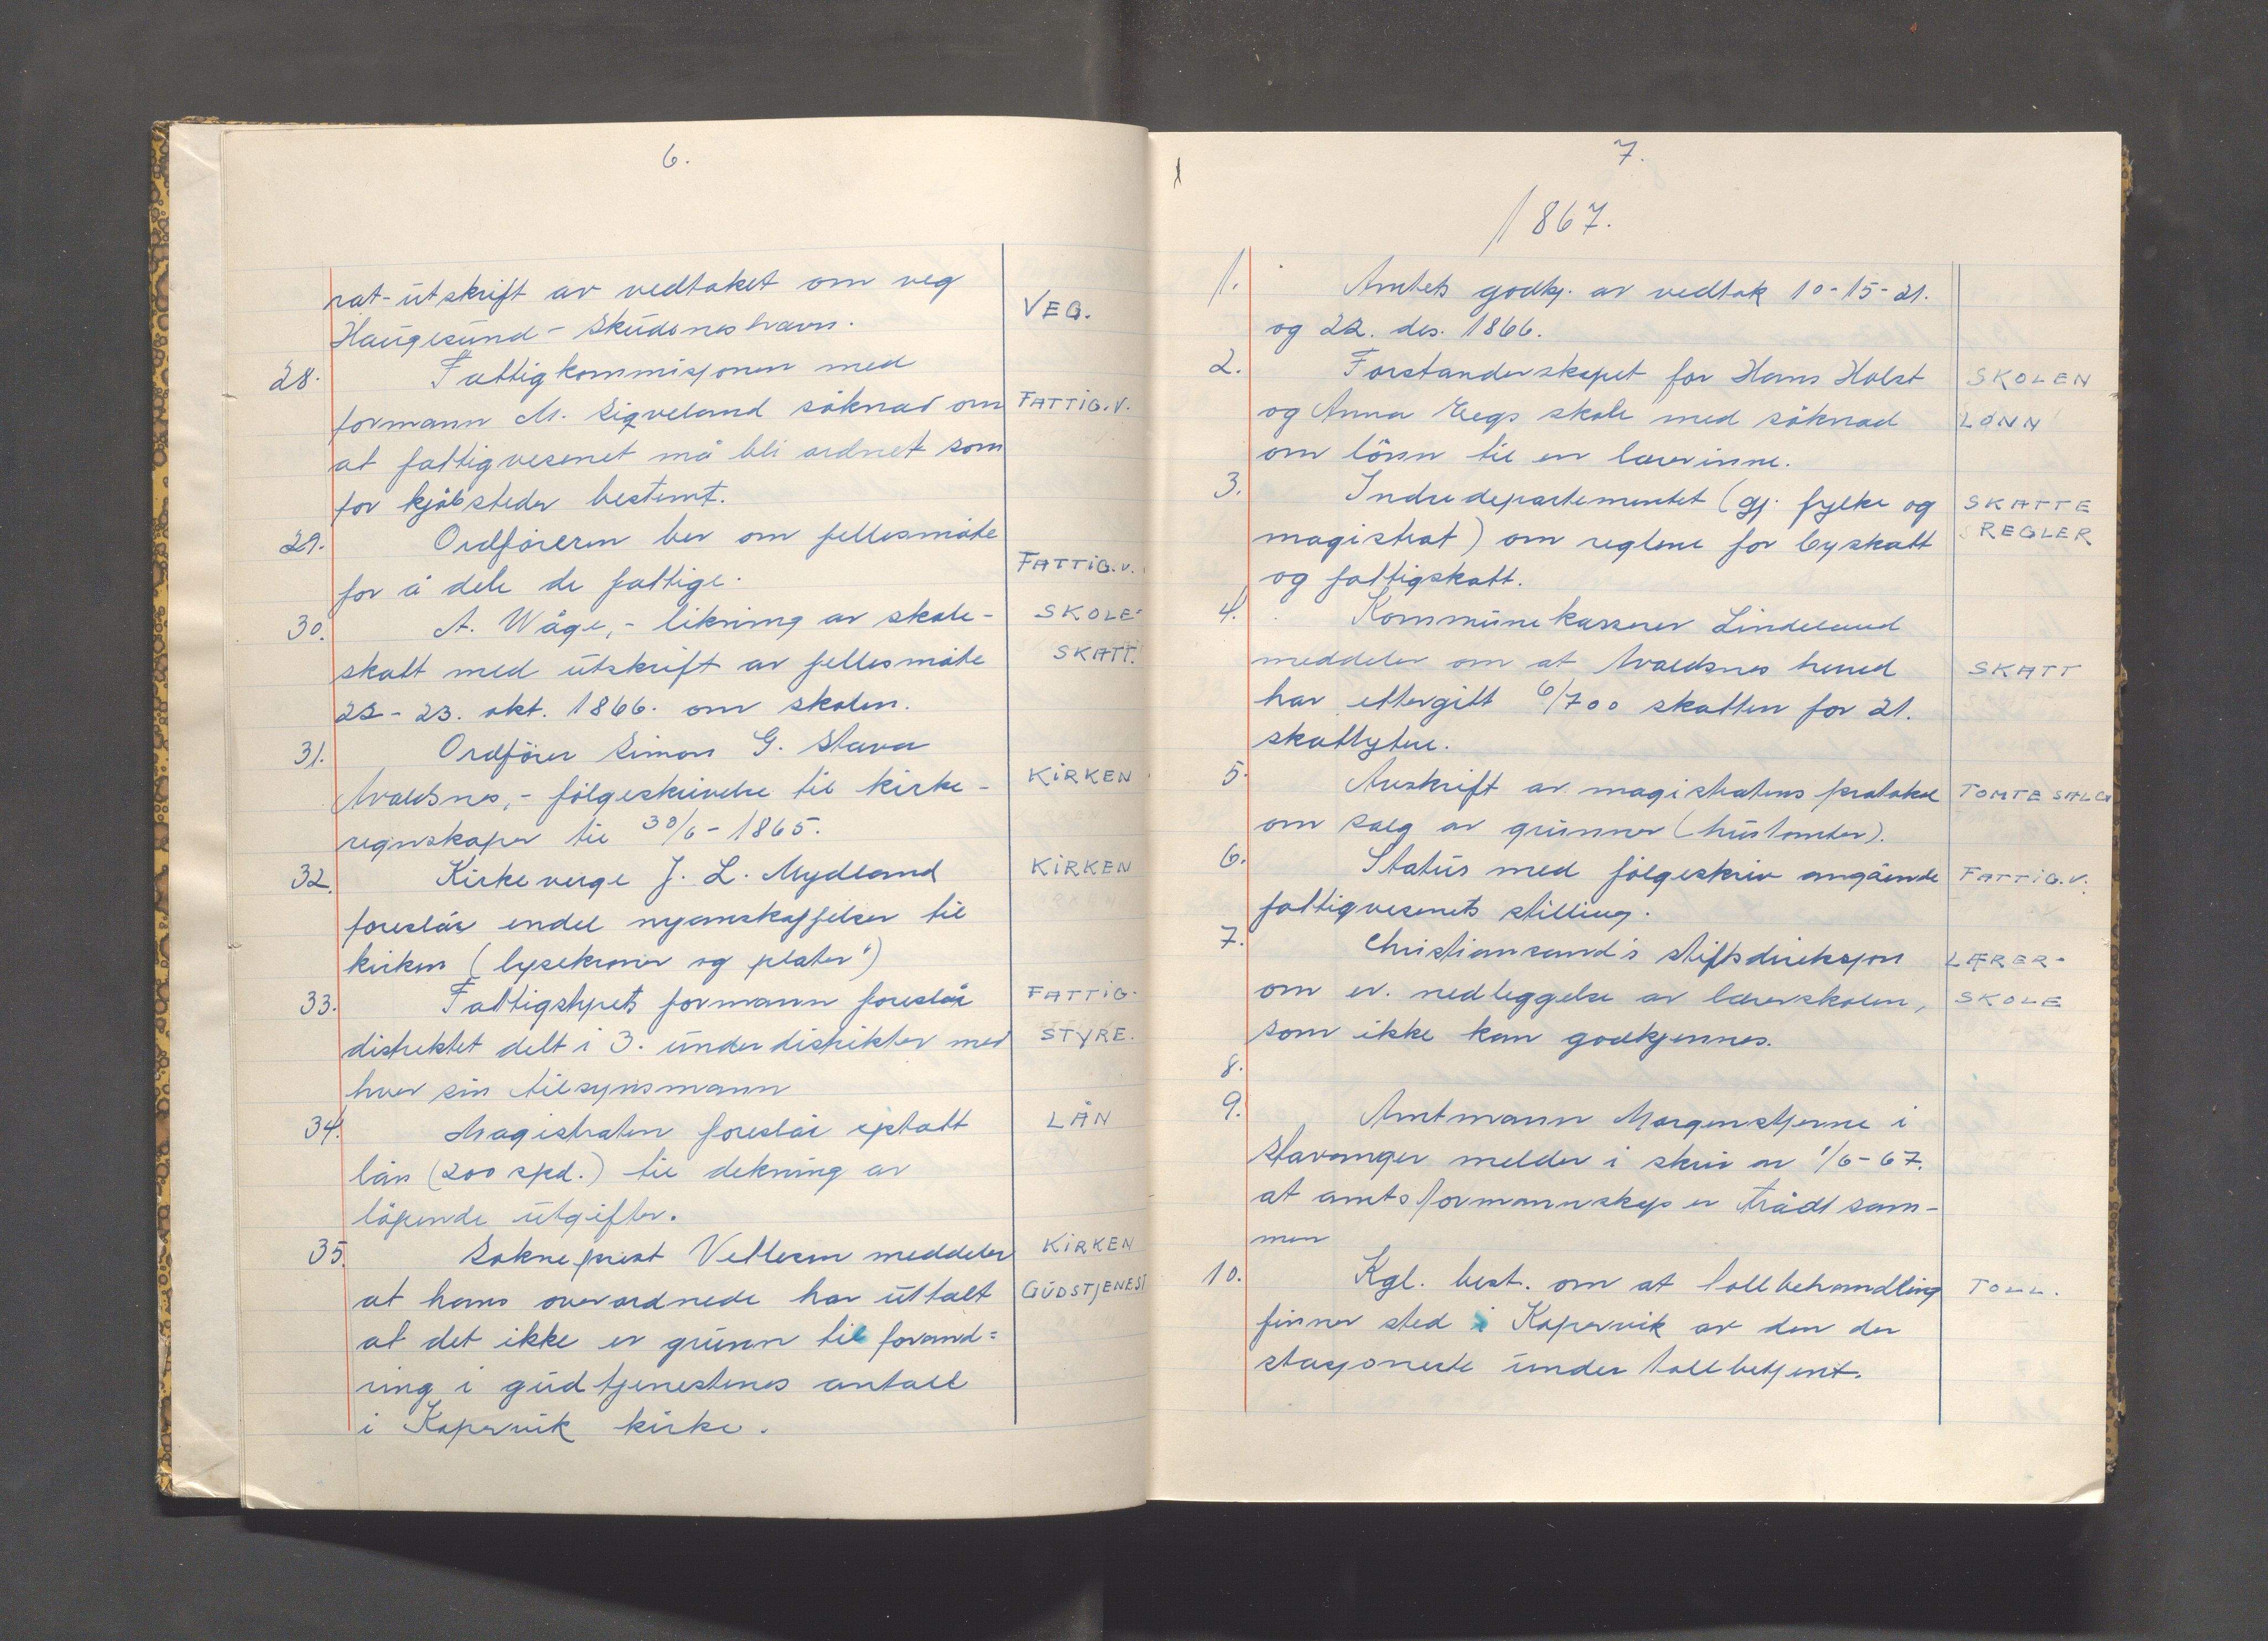 6.
rat-utskrift av vedtaket om veg VEG.
Haugesund - Skudesneshavn.
28. Fattigkommisjonen med
formann M. Sigveland söknad om FATTIG.V.
at fattigvesenet må bli ordnet som
for kjøbsteder bestemt.
29. Ordföreren ber om fellesmöte
for å dele de fattige. FATTIG.V.
30. A. Wåge, - likning av skole- SKOLE-
skatt med utskrift av fellesmöte SKATT.
22 - 23. okt. 1866. om skolen.
31. Ordförer Simon G. Stava
Avaldsnes, - fölgeskrivelse til kirke- KIRKEN
regnskaper til 30/6 - 1865.
32. Kirkeverge J. L. Mydland KIRKEN
foreslår endel nyanskaffelser til
kirken (lysekroner og "plater")
33. Fattigstyrets formann foreslår FATTIG-
distriktet delt i 3. underdistrikter med STYRE.
hver sin tilsynsmann
34. Magistraten foreslår optatt LÅN
lån (200 spd.) til dekning av
löpende utgifter.
35. Sokneprest Vellesen meddeler KIRKEN
at hans overordnede har uttalt GUDSTJENEST
at det ikke er grunn til forand=
ring i gudtjenestenes antall
i Kopervik kirke.
7.
1867.
1. Amtets godkj. av vedtak 10-15-21.
og 22. des. 1866.
2. Forstanderskapet for Hans Holst SKOLEN
og Anna Eegs skole med söknad LÖNN
om lönn til en lærerinne.
3. Indredepartementet (gj. fylke og SKATTE
magistrat) om reglene for byskatt REGLER
og fattigskatt.
4. Kommunekasserer Lindeland
meddeler om at Avaldsnes herred SKATT
har ettergitt 6/700 skatten for 21.
skattytere.
5. Avskrift av magistratens protokol TOMTESALG
om salg av grunner (hustomter).
6. Status med fölgeskriv angående FATTIG.V.
fattigvesenets stilling.
7. Christiansand's stiftsdireksjon LÆRER-
om ev. nedleggelse av lærerskolen, SKOLE
som ikke kan godkjennes.
8.
9. Amtmann Morgenstjerne i
Stavanger melder i skriv av 1/6-67.
at amtsformannskap er trådt sam-
men
10. Kgl. best. om at tollbehandling TOLL.
finner sted i Kopervik av den der
stasjonerte undertollbetjent.